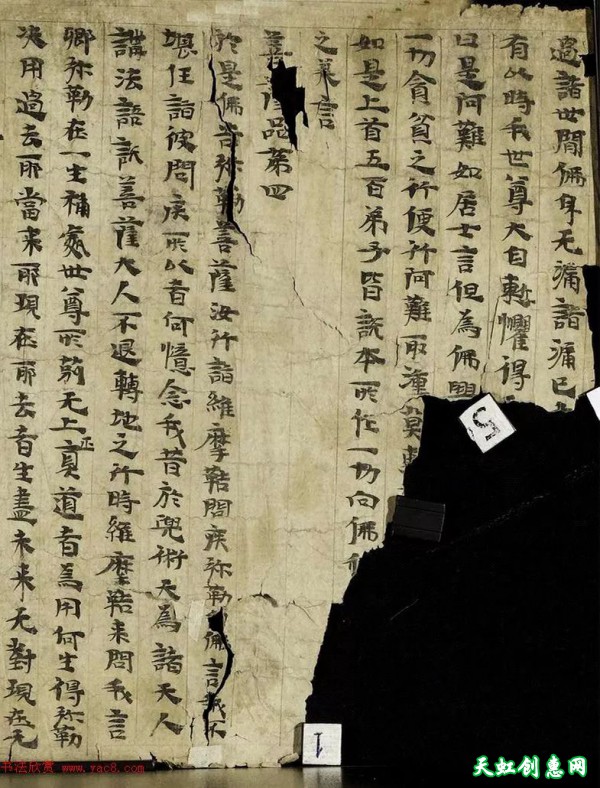 過諸世間佛身无漏諸漏已
有此時我世尊大自慙懼得
曰是阿難如居士言但為佛興
一切貪貧之行便行阿難取湩莫
如是上首五百弟子皆說本所作一切向佛
之美言
菩薩品第四
於是佛告弥勒菩薩汝行詣維摩詰問疾弥勒佛言我不
堪任詣彼問疾所以者何憶念我昔於兜術天為諸天人
講法語說菩薩大人不退轉地之行時維摩詰来問我言
卿弥勒在一生補處世尊所莂无上正真道者為用何生得弥勒
决用過去耶當来耶現在耶去者生盡未来无對現在无
1
书法欣赏 www.yac8.com
天虹创惠网